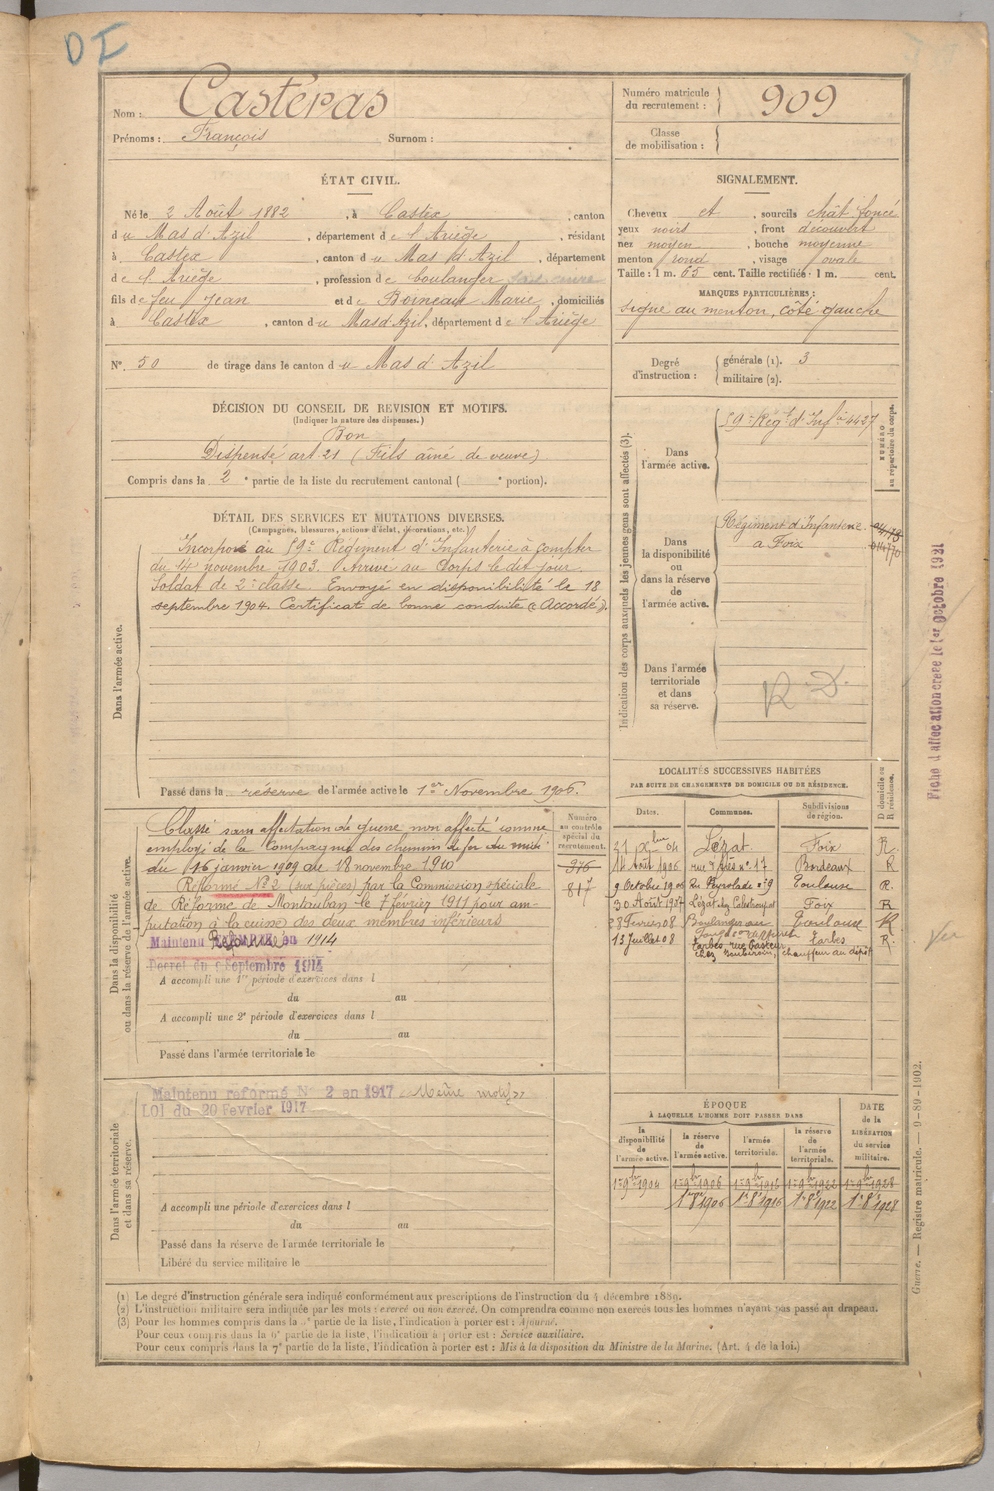 DI
Nom : Castéras
Prénoms : François Surnom :
Numéro matricule du recrutement : 909
Classe de mobilisation :
ÉTAT CIVIL.
Né le 2 Août 1882, à Castex, canton
du Mas d'Azil, département de l'Ariège, résidant
à Castex, canton du Mas d'Azil, département
de l'Ariège, profession de boulanger
fils de feu Jean et de Boineau Marie, domiciliés
à Castex, canton du Mas d'Azil, département de l'Ariège
N° 50 de tirage dans le canton du Mas d'Azil
SIGNALEMENT.
Cheveux et, sourcils chât foncé
yeux noirs, front découvert
nez moyen, bouche moyenne
menton rond, visage ovale
Taille : 1 m. 65 cent. Taille rectifiée : 1 m. cent.
MARQUES PARTICULIÈRES :
signe au menton, côté gauche
Degré d'instruction : générale (1). 3
militaire (2).
DÉCISION DU CONSEIL DE REVISION ET MOTIFS.
(Indiquer la nature des dispenses.)
Bon
Dispensé art. 21 (Fils aîné de veuve)
Compris dans la 2e partie de la liste du recrutement cantonal ( e portion).
DÉTAIL DES SERVICES ET MUTATIONS DIVERSES.
(Campagnes, blessures, actions d'éclat, décorations, etc.)
Dans l'armée active.
Incorporé au 59e Régiment d'Infanterie à compter
du 14 novembre 1903. Arrivé au Corps le dit jour.
Soldat de 2e classe. Envoyé en disponibilité le 18
septembre 1904. Certificat de bonne conduite « Accordé ».
Passé dans la réserve de l'armée active le 1er Novembre 1906.
Indication des corps auxquels les jeunes gens sont affectés (3).
NUMÉRO au répertoire du corps.
Dans l'armée active.
59e Régt d'Infie 4427
Dans la disponibilité ou dans la réserve de l'armée active.
Régiment d'Infanterie
à Foix
Dans l'armée territoriale et dans sa réserve.
R. D.
Dans la disponibilité ou dans la réserve de l'armée active.
Classé sans affectation de guerre non affecté comme
employé de la Compagnie des chemins de fer du midi
du 16 janvier 1909 au 18 novembre 1910
Réformé N° 2 (sur pièces) par la Commission spéciale
de Réforme de Montauban le 7 février 1911 pour am-
putation à la cuisse des deux membres inférieurs
Maintenu Réformé en 1914
Décret du 9 Septembre 1914
A accompli une 1re période d'exercices dans l
du au
A accompli une 2e période d'exercices dans l
du au
Passé dans l'armée territoriale le
Numéro au contrôle spécial du recrutement.
976
817
LOCALITÉS SUCCESSIVES HABITÉES
PAR SUITE DE CHANGEMENTS DE DOMICILE OU DE RÉSIDENCE.
Dates. Communes. Subdivisions de région. D domicile ou R résidence.
21 Xbre 04 Lézat Foix R
14 Août 1906 Bordeaux R
9 Octobre 1906 Toulouse R.
30 Août 1907 Lézat Foix R
28 Février 08 Boulanger Toulouse R
13 Juillet 08 Tarbes, rue Pasteur Tarbes R.
chauffeur au dépôt
Vu
Fiche d'affectation créée le 1er Octobre 1921
Dans l'armée territoriale et dans sa réserve.
Maintenu réformé N° 2 en 1917 « Même motif »
LOI du 20 Février 1917
A accompli une période d'exercices dans l
du au
Passé dans la réserve de l'armée territoriale le
Libéré du service militaire le
ÉPOQUE
À LAQUELLE L'HOMME DOIT PASSER DANS
la disponibilité de l'armée active. la réserve de l'armée active. l'armée territoriale. la réserve de l'armée territoriale. DATE de la LIBÉRATION du service militaire.
1er 9bre 1904 1er 9bre 1906 1er 9bre 1916 1er 9bre 1922 1er 9bre 1928
1er 8bre 1906 1er 8bre 1916 1er 8bre 1922 1er 8bre 1928
(1) Le degré d'instruction générale sera indiqué conformément aux prescriptions de l'instruction du 4 décembre 1889.
(2) L'instruction militaire sera indiquée par les mots : exercé ou non exercé. On comprendra comme non exercés tous les hommes n'ayant pas passé au drapeau.
(3) Pour les hommes compris dans la 5e partie de la liste, l'indication à porter est : Ajourné.
Pour ceux compris dans la 6e partie de la liste, l'indication à porter est : Service auxiliaire.
Pour ceux compris dans la 7e partie de la liste, l'indication à porter est : Mis à la disposition du Ministre de la Marine. (Art. 4 de la loi.)
Guerre. — Registre matricule. — 9-89-1902.